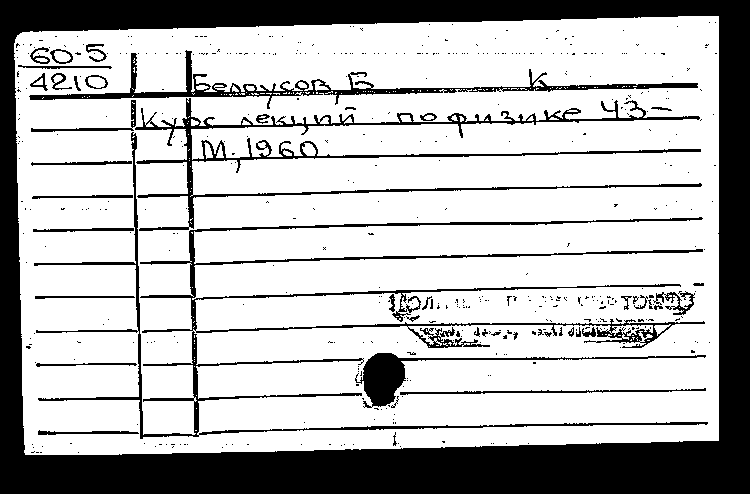 60-5
4210
Белоусов, Б К
Курс лекций по физике Ч3-
М., 1960.